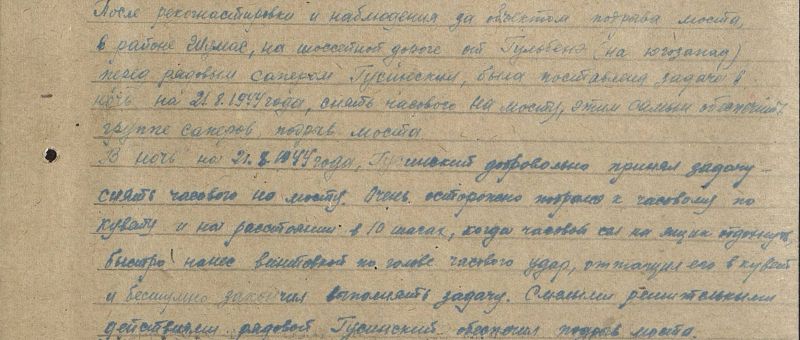 После рекогнастировки и наблюдения за обьектом подрава моста,
в районе на шоссейной дороге от Гульбене (на югозапад)
перед рядовым сапером Гусинским, была поставлена задача в
ночь на 21.8.1944 года, снять часового на мосту, этим самым обеспечить
группе саперов, подрав моста.
В ночь на 21.8.1944 года, Гусинский добровольно принял задачу –
снять часового на мосту. Очень осторожно подрался к часовому по
кувету и на расстоянии в 10 шагах, когда часовой сел на ящик отдохнуть,
быстро нанес винтовкой по голове часового удар, оттащил его в кувет
и бесшумно закончил выполнять задачу. Смелыми решительными
действиями рядовой Гусинский обеспечил подрав моста.